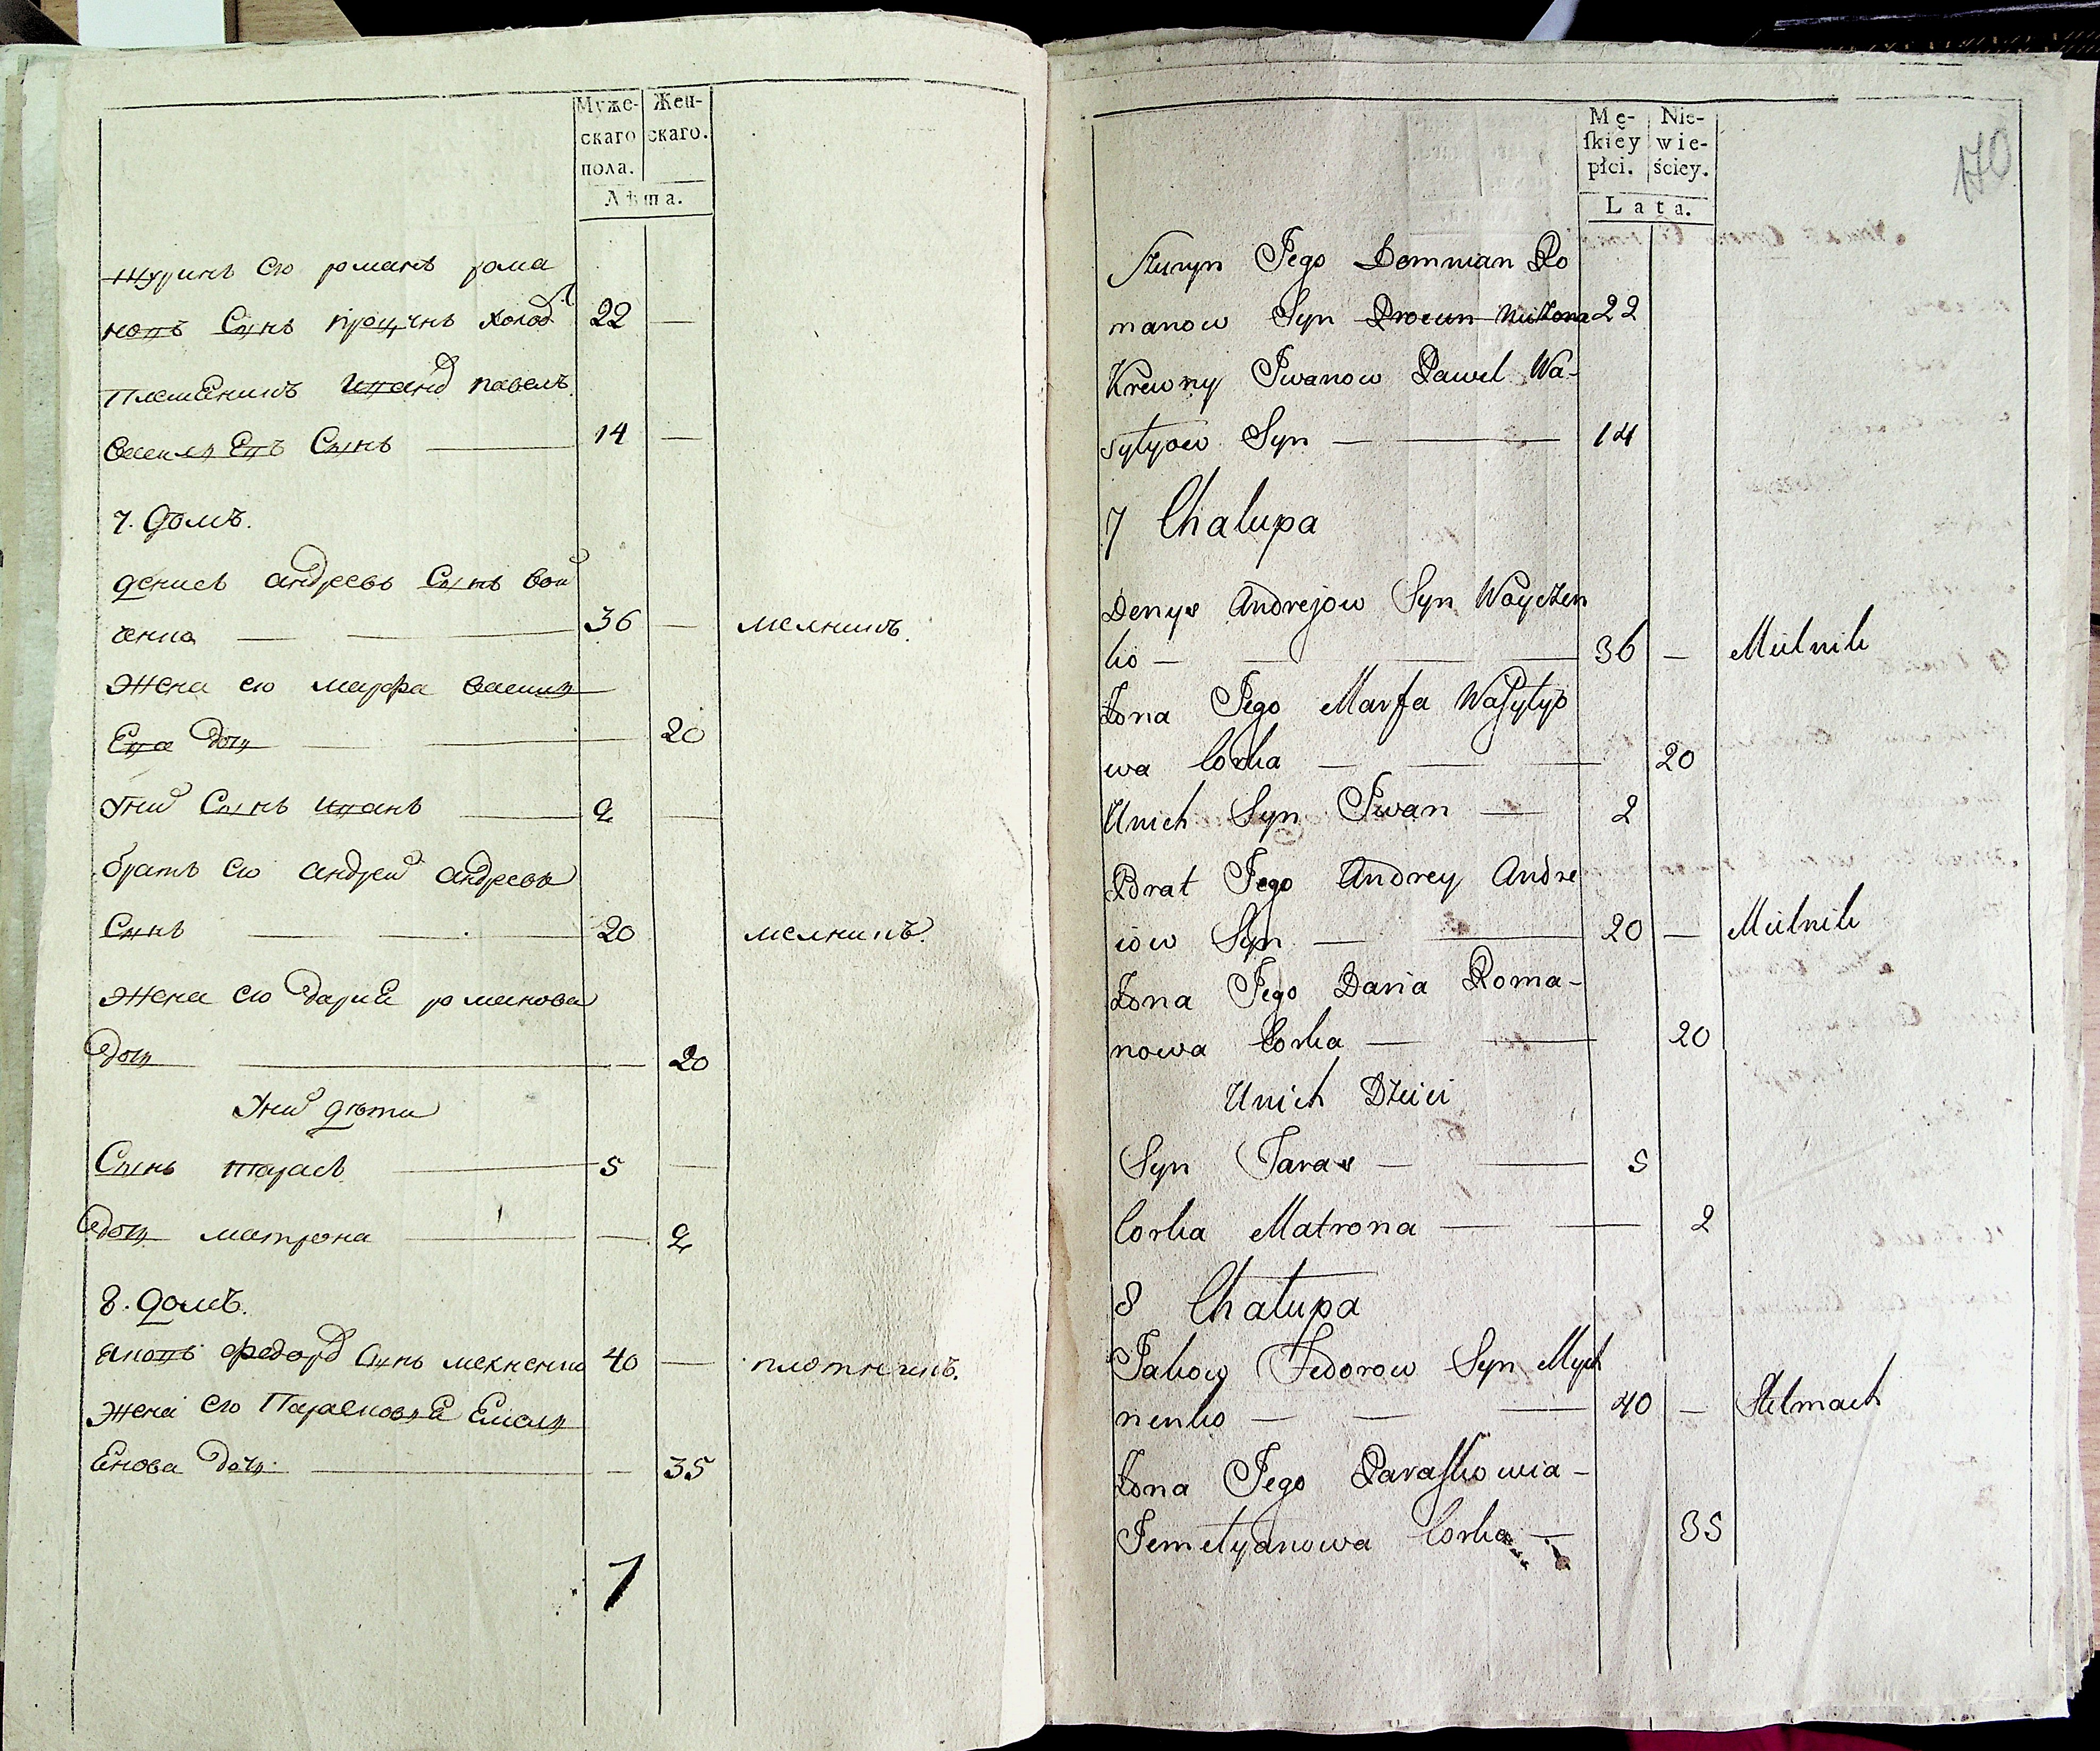 Муже-
скаго
пола.
Жен-
скаго.
Лѣта.
Журинъ ею романъ рома
новъ Сынъ процинъ холод 22 —
племЕникъ Иванд павелъ
василЕвъ Сынъ — 14 —
7. домъ.
денисъ андреевъ Сынъ вой
ченко — — — 36 — мелникъ.
жена ею марфа васил
Ева дочь — — 20
Уних Сынъ иванъ — 2 —
братъ ею андрей андреевъ
Сынъ — — 20 мелникъ.
жена ею дариЕ романова
дочь — — 20
Уних дѣти
Сынъ тарасъ — 5 —
дочь матрона — — 2
8. домъ.
яковъ федоръ Сынъ 40 — плотникъ.
жена ею ПарасковиЕ Емел
Енова дочь — — 35
1
Mę-
skiéy
płci.
Nie-
wie-
ściey.
Lata.
170
Szuryn Jego Demnian Ro
manow Syn Procun Nikona 22
Krewny Iwanow Pawel Wa-
sylyow Syn — — 14
7 Chalupa
Denys Andrejow Syn Woyczen
ko — — — 36 — Mielnik
Żona Jego Marfa Wasylyo
wa Corka — — — 20
Unich Syn Iwan — 2
Brat Jego Andrey Andre
iow Syn — — 20 — Mielnik
Żona Jego Daria Roma-
nowa Corka — — 20
Unich Dzieci
Syn Taras — — 5
Corka Matrona — — 2
8 Chalupa
Jakow Fedorow Syn Mych
nenko — — — 40 — Stelmach
Żona Jego Paraskowia-
Jemelyanowa Corka — 35